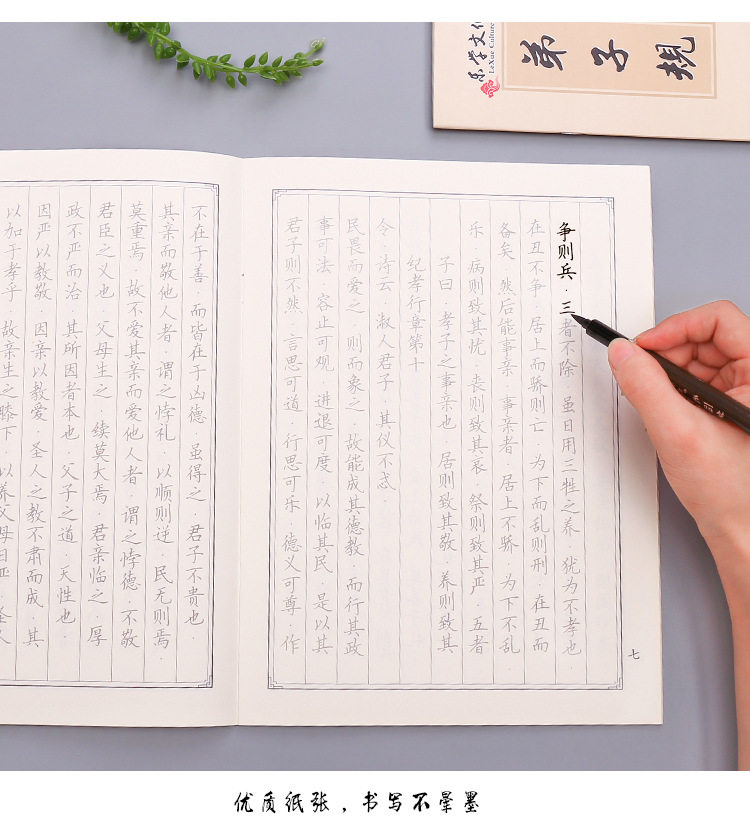 乐学文化
LeXue Culture
弟子规
以加于孝乎·故亲生之膝下·以养父母日严·圣人
因严以教敬·因亲以教爱·圣人之教不肃而成·其
政不严而治·其所因者本也·父子之道·天性也·
君臣之义也·父母生之·续莫大焉·君亲临之·厚
莫重焉·故不爱其亲而爱他人者·谓之悖德·不敬
其亲而敬他人者·谓之悖礼·以顺则逆·民无则焉·
不在于善·而皆在于凶德·虽得之·君子不贵也·
君子则不然·言思可道·行思可乐·德义可尊·作
事可法·容止可观·进退可度·以临其民·是以其
民畏而爱之·则而象之·故能成其德教·而行其政
令·诗云·淑人君子·其仪不忒
纪孝行章第十
子曰·孝子之事亲也·居则致其敬·养则致其
乐·病则致其忧·丧则致其哀·祭则致其严·五者
备矣·然后能事亲·事亲者·居上不骄·为下不乱·
在丑不争·居上而骄则亡·为下而乱则刑·在丑而
争则兵·三者不除·虽日用三牲之养·犹为不孝也
七
优质纸张，书写不晕墨